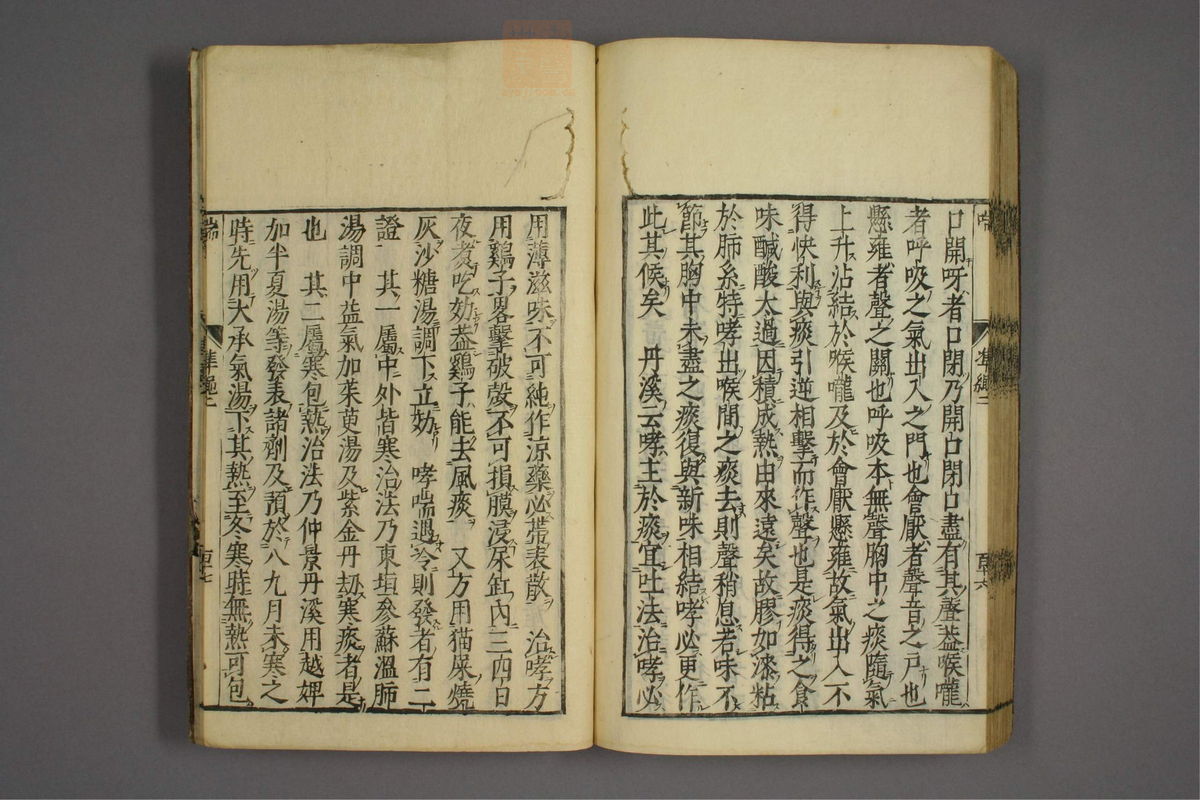 口開呀者口閉乃開口閉口盡有其聲葢喉嚨
者呼吸之氣出入之門也會厭者聲音之戸也
懸雍者聲之關也呼吸本無聲胸中之痰隨氣
上升沾結於喉嚨及於會厭懸雍故氣出入不
得快利與痰引逆相擊而作聲也是痰得之食
味醎酸太過因積成熱由來遠矣故膠如漆粘
於肺系特哮出喉間之痰去則聲稍息若味不
節其胸中未盡之痰復與新味相結哮必更作
此其候矣　丹溪云哮主於痰宜吐法治哮必
用薄滋味不可純作凉藥必帶表散　治哮方
用鷄子畧擊破殼不可損膜浸尿缸內三四日
夜煑吃効葢鷄子能去風痰　又方用猫屎燒
灰沙糖湯調下立効　哮喘遇冷則發者有二
證　其一屬中外皆寒治法乃東垣參蘇溫肺
湯調中益氣加茱萸湯及紫金丹刼寒痰者是
也　其二屬寒包熱治法乃仲景丹溪用越婢
加半夏湯等發表諸劑及預於八九月未寒之
時先用大承氣湯下其熱至冬寒時無熱可包
喘
準繩二
百七
準繩二
百六